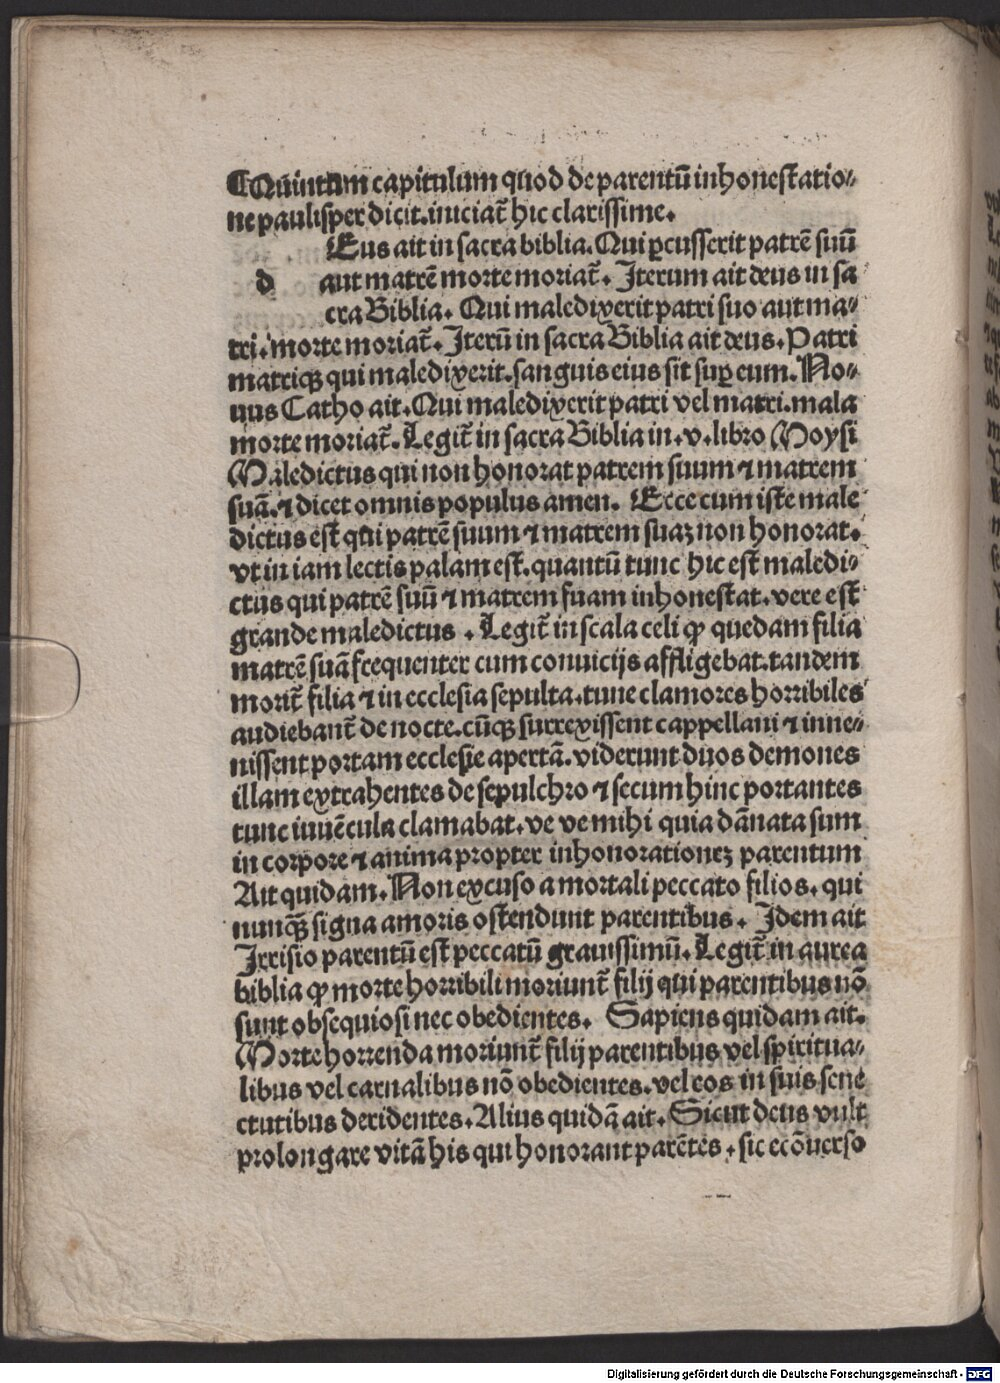 ¶Quintum capitulum quod de parentū inhonestatio⸗
ne paulisper dicit. iniciat̄ hic clarissime.
Eus ait in sacra biblia. Qui ꝑcusserit patrē suū
d aut matrē morte moriat̄. Iterum ait deus in sa
cra Biblia. Qui maledixerit patri suo aut ma⸗
tri. morte moriat̄. Iterū in sacra Biblia ait deus. Patri
matriqꝫ qui maledixerit. sanguis eius sit suꝑ eum. No⸗
uus Catho ait. Qui maledixerit patri vel matri. mala
morte moriat̄. Legit̄ in sacra Biblia in .v. libro Moysi
Maledictus qui non honorat patrem suum ⁊ matrem
suā. ⁊ dicet omnis populus amen. Ecce cum iste male
dictus est qui patrē suum ⁊ matrem suaꝫ non honorat.
vt in iam lectis palam est. quantū tunc hic est maledi⸗
ctus qui patrē suū ⁊ matrem suam inhonestat. vere est
grande maledictus . Legit̄ in scala celi ꝙ quedam filia
matrē suā frequenter cum conuicijs affligebat. tandem
morit̄ filia ⁊ in ecclesia sepulta. tunc clamores horribiles
audiebant̄ de nocte. cūqꝫ surrexissent cappellani ⁊ inue⸗
nissent portam ecclesie apertā. viderunt duos demones
illam extrahentes de sepulchro ⁊ secum hinc portantes
tunc iuuēcula clamabat. ve ve mihi quia dānata sum
in corpore ⁊ anima propter inhonorationeꝫ parentum
Ait quidam. Non excuso a mortali peccato filios. qui
nunqꝫ signa amoris ostendunt parentibus. Idem ait
Irrisio parentū est peccatū grauissimū. Legit̄ in aurea
biblia ꝙ morte horribili moriunt̄ filij qui parentibus nō
sunt obsequiosi nec obedientes. Sapiens quidam ait.
Morte horrenda moriunt̄ filij parentibus vel spiritua⸗
libus vel carnalibus nō obedientes. vel eos in suis sene
ctutibus deridentes. Alius quidā ait. Sicut deus vult
prolongare vitā his qui honorant parētes . sic ecōuerso
Digitalisierung gefördert durch die Deutsche Forschungsgemeinschaft - DFG